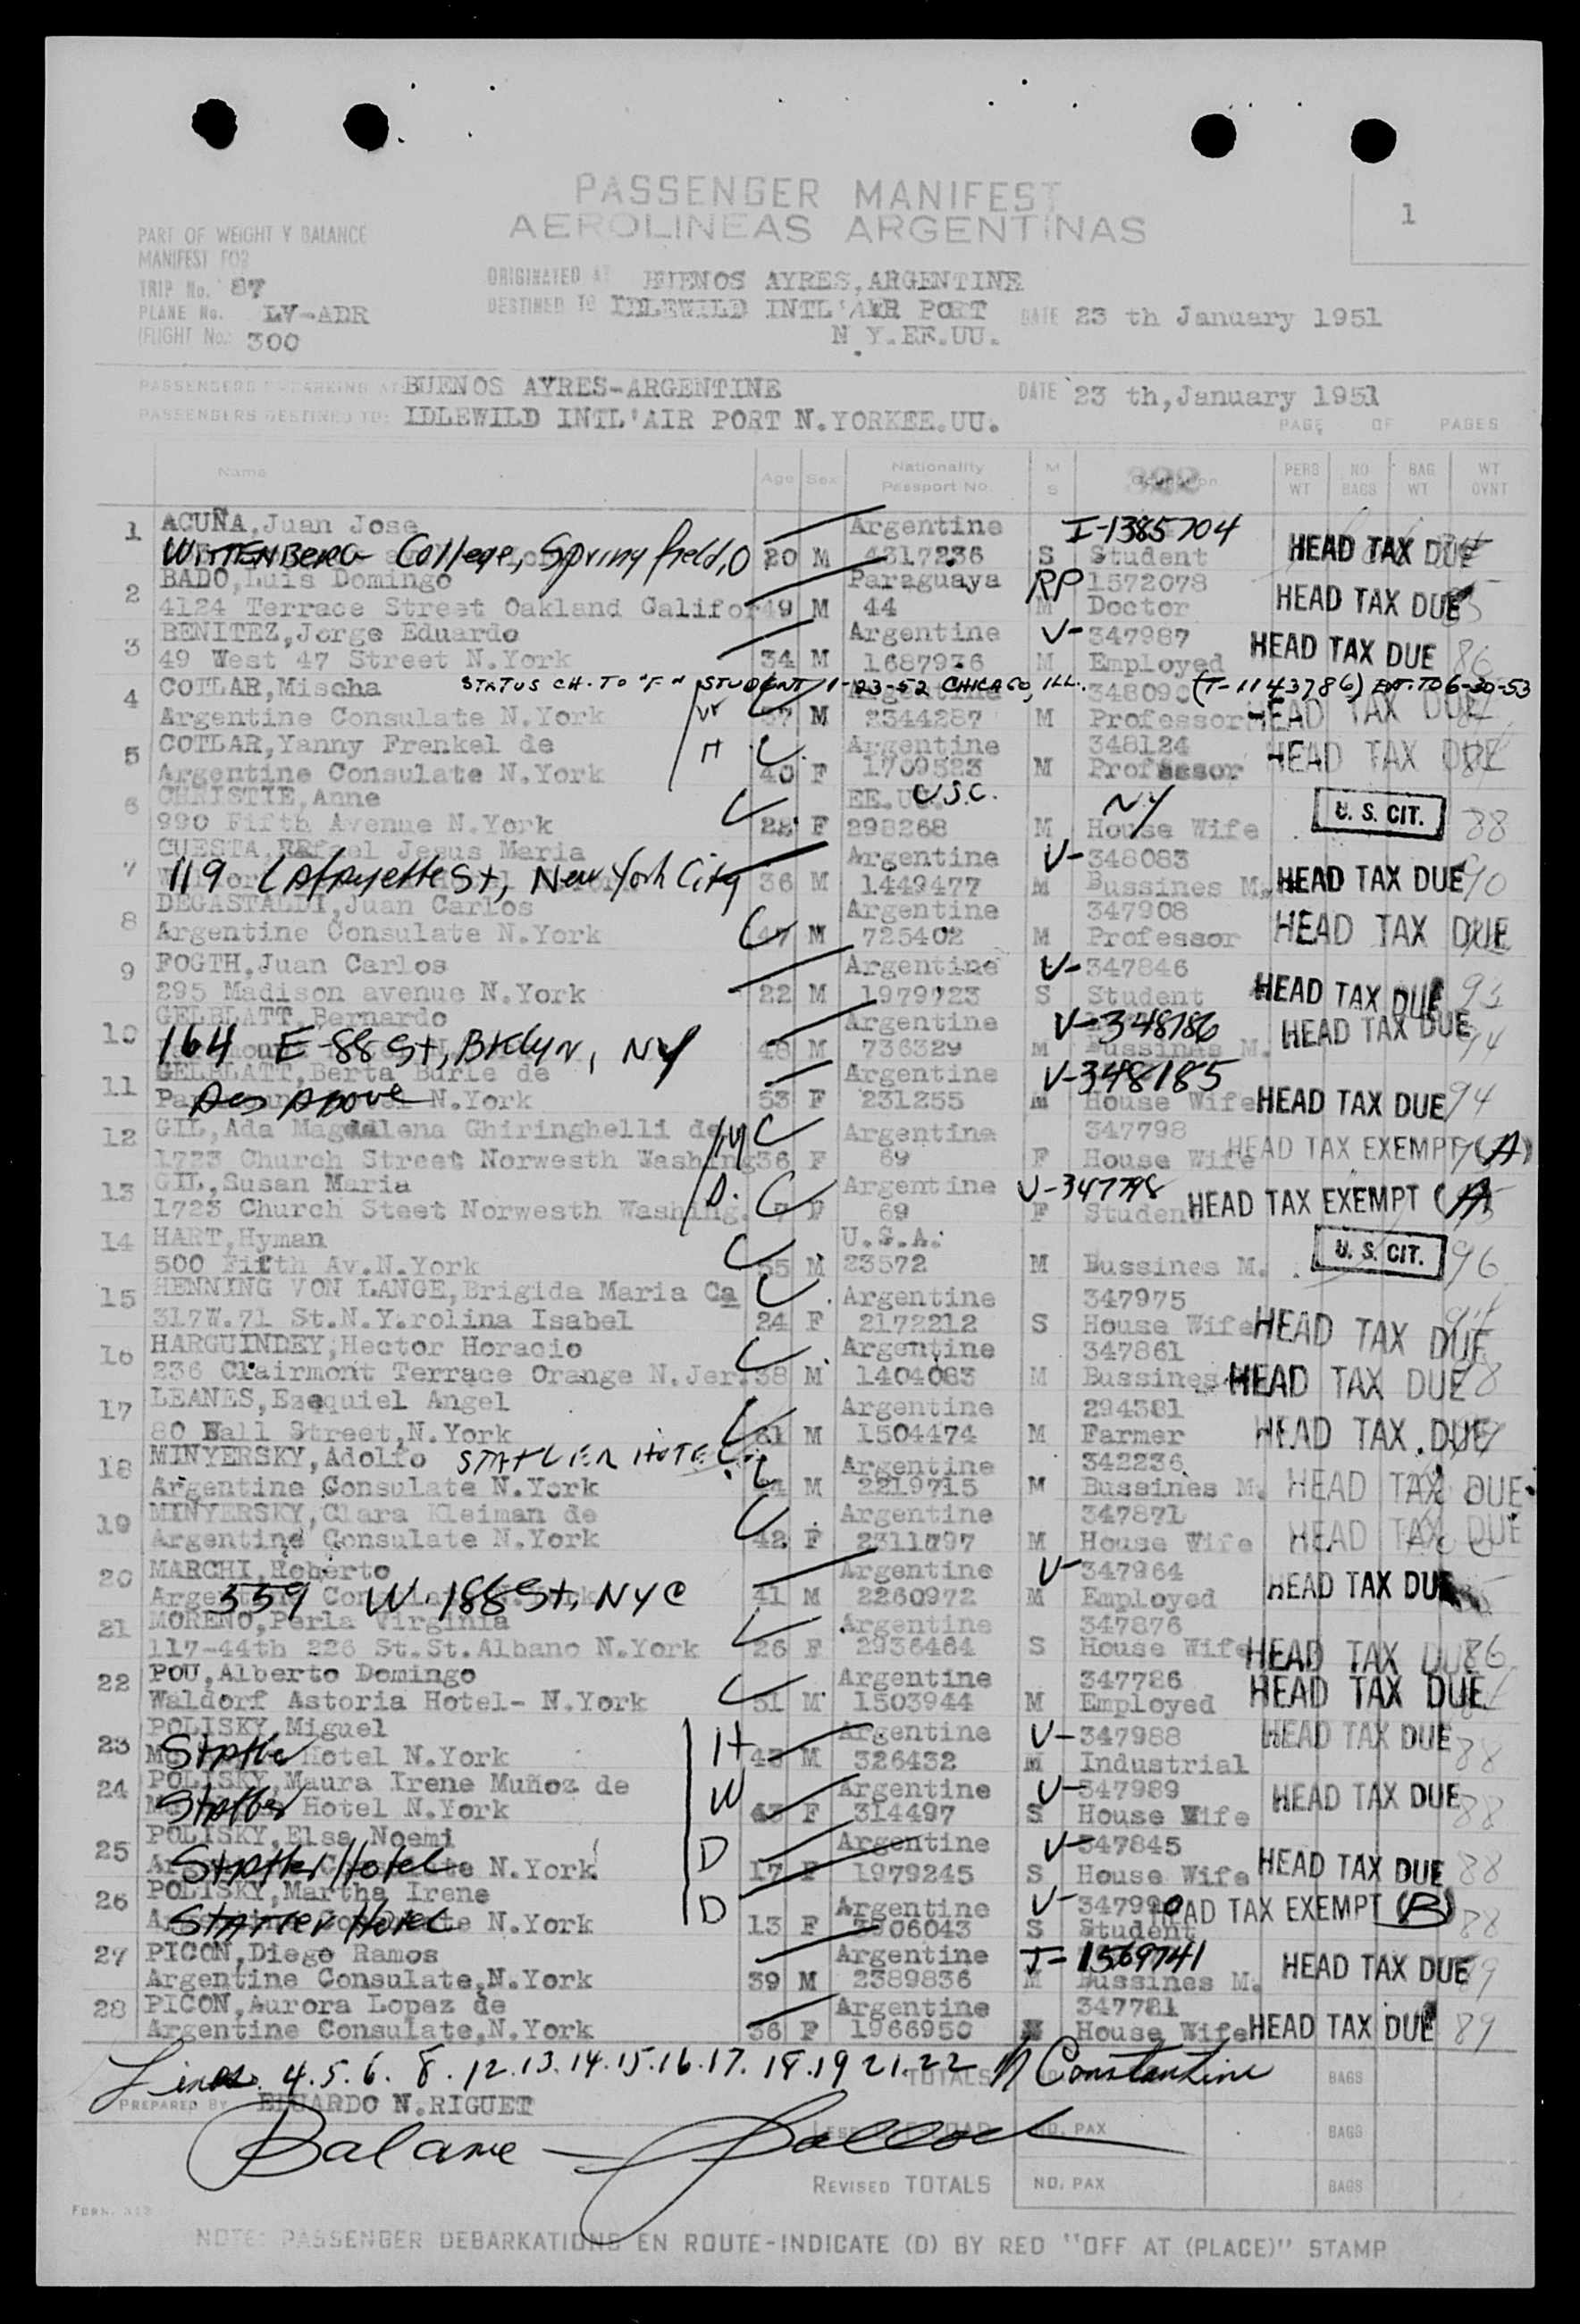 PASSENGER MANIFEST
AEROLINEAS ARGENTINAS
1
PART OF WEIGHT Y BALANCE
MANIFEST FOR
TRIP No. 87
PLANE No. LV-ADR
FLIGHT No. 300
ORIGINATED AT BUENOS AYRES, ARGENTINE
DESTINED TO IDLEWILD INTL'AIR PORT
N Y.EE.UU.
DATE 23 th January 1951
PASSENGERS EMBARKING AT BUENOS AYRES-ARGENTINE DATE 23 th,January 1951
PASSENGERS DESTINED TO: IDLEWILD INTL'AIR PORT N.YORKEE.UU.
PAGE OF PAGES
Name Age Sex Nationality Passport No. M S PERS WT NO BAGS BAG WT WT OVNT
1 ACUÑA,Juan Jose Argentine I-1385704
WITTENBERG College, Springfield,O 20 M 4317236 S Student HEAD TAX DUE
2 BADO,Luis Domingo Paraguaya RP 1572078
4124 Terrace Street Oakland Califor 49 M 44 M Doctor HEAD TAX DUE
3 BENITEZ,Jorge Eduardo Argentine V-347987
49 West 47 Street N.York 34 M 1687936 M Employed HEAD TAX DUE 86
4 COTLAR,Mischa STATUS CH. TO "F" STUDENT 1-23-52 CHICAGO, ILL. 348090 (T-1143786) EXT. TO 6-30-53
Argentine Consulate N.York 37 M 2344287 M Professor HEAD TAX DUE
5 COTLAR,Yanny Frenkel de H Argentine 348124
Argentine Consulate N.York 40 F 1709523 M Professor HEAD TAX DUE
6 CHRISTIE,Anne EE.UU. U.S.C. NY
990 Fifth Avenue N.York 28 F 298268 M House Wife U. S. CIT. 88
7 CUESTA, Rafael Jesus Maria Argentine V-348083
119 Lafayette St, New York City 36 M 1449477 M Bussines M. HEAD TAX DUE 90
8 DEGASTALDI,Juan Carlos Argentine 347908
Argentine Consulate N.York 47 M 725402 M Professor HEAD TAX DUE
9 FOGTH,Juan Carlos Argentine V-347846
295 Madison avenue N.York 22 M 1979923 S Student HEAD TAX DUE 93
10 GELBLATT,Bernardo Argentine V-348186
164 E 88 St, BKlyn, NY 48 M 736329 M Bussines M. HEAD TAX DUE 94
11 GELBLATT,Berta Burle de Argentine V-348185
As Above N.York 53 F 231255 M House Wife HEAD TAX DUE 94
12 GIL,Ada Magdalena Ghiringhelli de M Argentine 347798
1723 Church Street Norwesth Washing 36 F 69 F House Wife HEAD TAX EXEMPT (A)
13 GIL,Susan Maria D. Argentine V-347798
1723 Church Steet Norwesth Washing. 7 F 69 F Student HEAD TAX EXEMPT (A)
14 HART,Hyman U.S.A.
500 Fifth Av.N.York 55 M 23572 M Bussines M. U. S. CIT. 96
15 HENNING VON LANGE,Brigida Maria Ca Argentine 347975
317W.71 St.N.Y.rolina Isabel 24 F 2172212 S House Wife HEAD TAX DUE
16 HARGUINDEY,Hector Horacio Argentine 347861
236 Clairmont Terrace Orange N.Jer. 38 M 1404083 M Bussines HEAD TAX DUE
17 LEANES,Ezequiel Angel Argentine 294381
80 Wall Street,N.York 61 M 1504474 M Farmer HEAD TAX DUE
18 MINYERSKY,Adolfo STATLER HOTEL Argentine 342236
Argentine Consulate N.York M 2219715 M Bussines M. HEAD TAX DUE
19 MINYERSKY,Clara Kleiman de Argentine 347871
Argentine Consulate N.York 42 F 2311797 M House Wife HEAD TAX DUE
20 MARCHI,Roberto Argentine V-347964
559 W. 188 St, NYC 41 M 2260972 M Employed HEAD TAX DUE
21 MORENO,Perla Virginia Argentine 347876
117-44th 226 St.St.Albano N.York 26 F 2936464 S House Wife HEAD TAX DUE 86
22 POU,Alberto Domingo Argentine 347786
Waldorf Astoria Hotel- N.York 51 M 1503944 M Employed HEAD TAX DUE
23 POLISKY,Miguel H Argentine V-347988
Statler Hotel N.York 43 M 326432 M Industrial HEAD TAX DUE 88
24 POLISKY,Maura Irene Muñoz de W Argentine V-347989
Statler Hotel N.York 43 F 314497 S House Wife HEAD TAX DUE 88
25 POLISKY,Elsa Noemi D Argentine V-347845
Statler Hotel N.York 17 F 1979245 S House Wife HEAD TAX DUE 88
26 POLISKY,Martha Irene D Argentine V-347990
Statler Hotel N.York 13 F 3906043 S Student HEAD TAX EXEMPT (B) 88
27 PICON,Diego Ramos Argentine I-1569741
Argentine Consulate,N.York 39 M 2389836 M Bussines M. HEAD TAX DUE 89
28 PICON,Aurora Lopez de Argentine 347781
Argentine Consulate,N.York 36 F 1966950 House Wife HEAD TAX DUE 89
Lines. 4.5.6. 8. 12.13.14.15.16.17. 18.19 21.22 TOTALS M Constantine BAGS
PREPARED BY EDUARDO N.RIGUET
Balance NO. PAX BAGS
REVISED TOTALS NO. PAX BAGS
FORM. 313
NOTE: PASSENGER DEBARKATIONS EN ROUTE-INDICATE (D) BY RED "OFF AT (PLACE)" STAMP